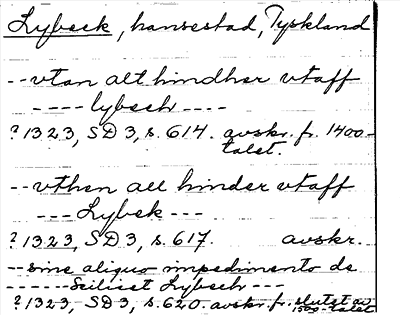 Lybeck, hansestad, Tyskland
--vtan alt hindher vtaff
----lybech----
?1323, SD 3, s. 614. avskr. fr. 1400-
talet.
--vthen all hinder vtaff
---Lybek---
?1323, SD 3, s. 617. avskr.
--sine aliquo impedimento de
------Scilicet Lybech---
?1323, SD 3, s. 620. avskr. fr. slutet av
1500-talet